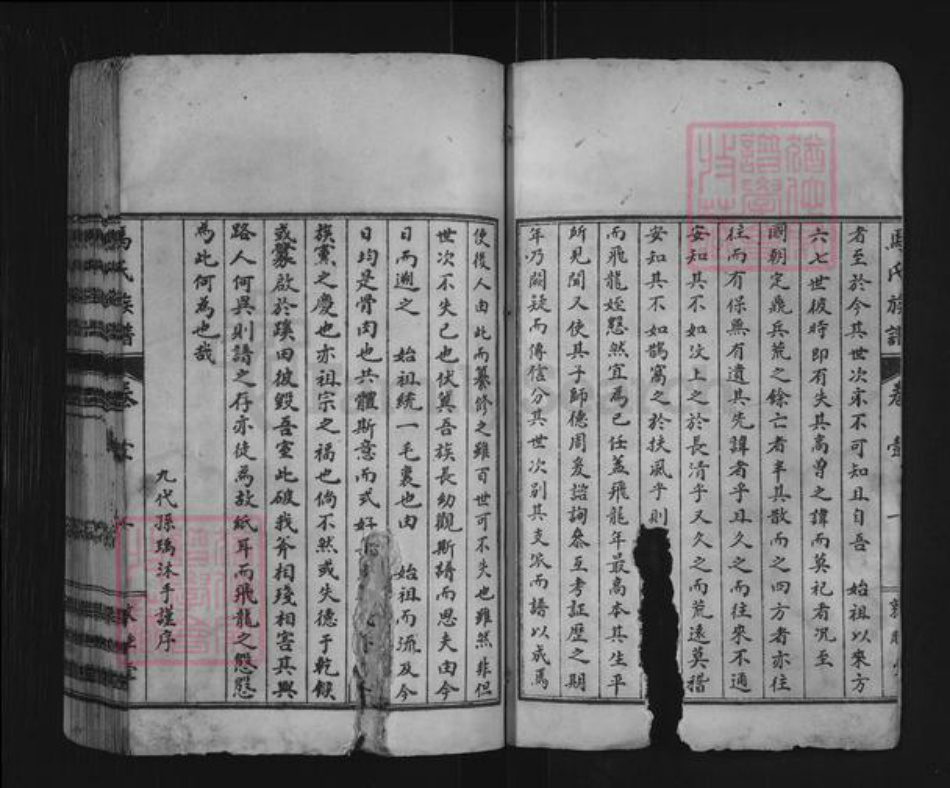 馮氏族譜
卷
者至於今其世次亦不可知且自吾 始祖以來方
六七世彼時即有失其高曾之諱而莫祀者況至
國朝定鼎兵荒之餘亡者半其散而之四方者亦往
往而有保無有遺其先諱者乎且久之而往來不通
安知其不如汶上之於長清乎又久之而荒遠莫稽
安知其不如鵲窩之於扶風乎則
而飛龍姪慇然宜為己任蓋飛龍年最高本其生平
所見聞又使其子師德周爰諮詢參互考証歷之期
年乃闕疑而傳信分其世次別其支派而譜以成焉
使後人由此而纂修之雖百世可不失也雖然非但
世次不失已也伏冀吾族長幼觀斯譜而思夫由今
日而遡之 始祖統一毛裏也由 始祖而流及今
日均是骨肉也共體斯意而式好
族黨之慶也亦祖宗之福也倘不然或失德于乾餱
或釁啟於蹊田彼毀吾室此破我斧相殘相害其與
路人何異則譜之存亦徒為故紙耳而飛龍之慇慇
為此何為也哉
九代孫瑀沐手謹序
氏族譜
卷